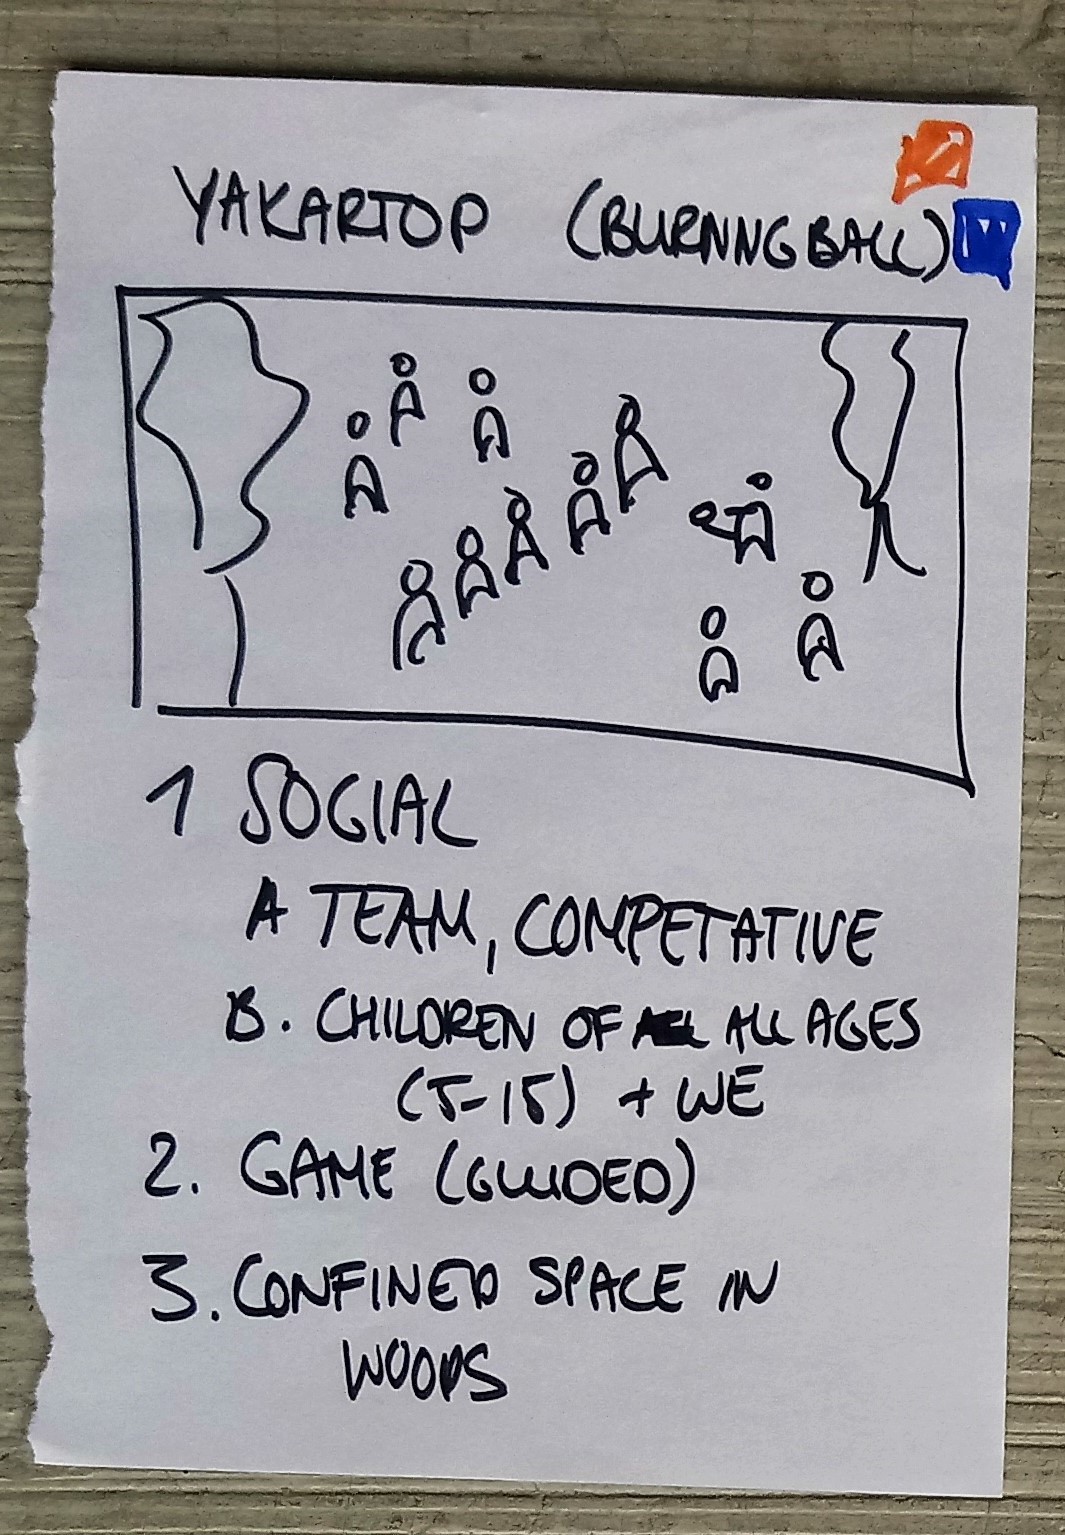 YAKARTOP (BURNNGBALL)
1 SOCIAL
A TEAM, COMPETATIVE
B. CHILDREN OF ALL AGES
(5-15) + WE
2. GAME (GUIDED)
3. CONFINED SPACE IN
WOODS